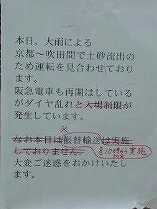 本日、大雨による
京都～吹田間で土砂流出の
ため運転を見合わせており
ます。
阪急電車も再開はしている
がダイヤ乱れと入場制限が
発生しています。
なお本日は振替輸送は実施
しておりません。
実施
大変ご迷惑をおかけいたし
ます。